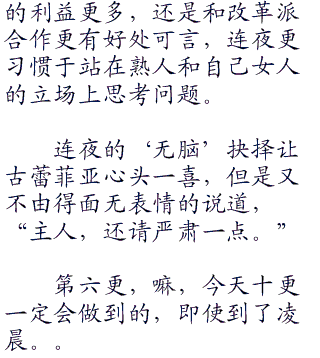 的利益更多，还是和改革派
合作更有好处可言，连夜更
习惯于站在熟人和自己女人
的立场上思考问题。
连夜的‘无脑’抉择让
古蕾菲亚心头一喜，但是又
不由得面无表情的说道，
“主人，还请严肃一点。”
第六更，嘛，今天十更
一定会做到的，即使到了凌
晨。。